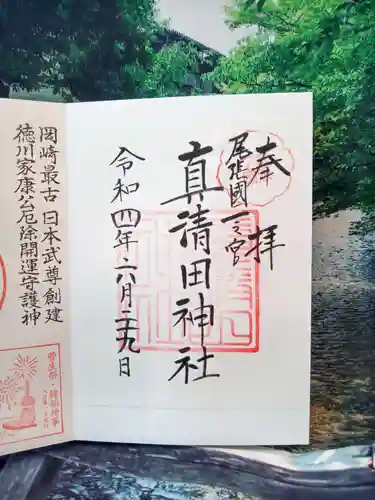 奉拝
尾張國一之宮
真清田神社
令和四年六月二十九日
岡崎最古 日本武尊創建
徳川家康公厄除開運守護神